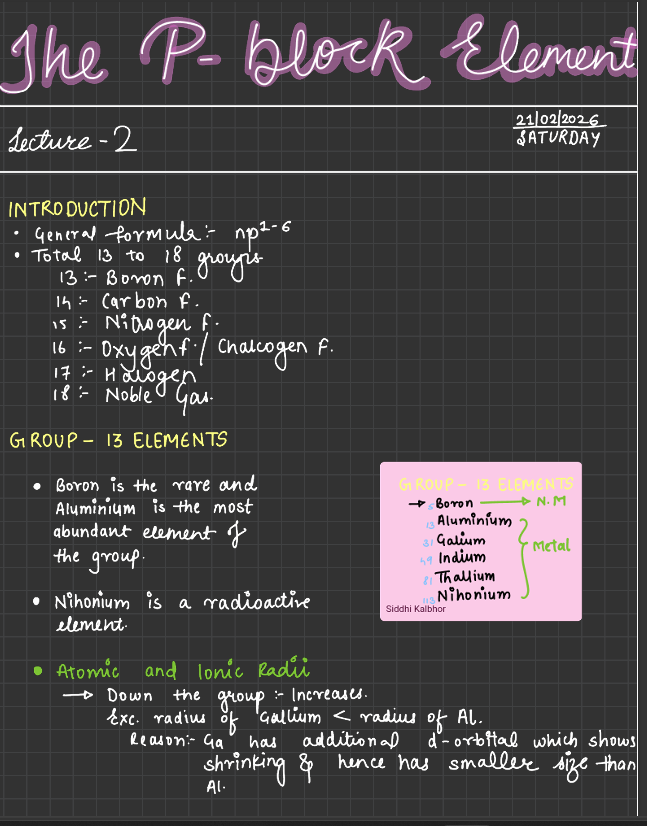 The P-block Element
Lecture-2
21/02/2026
SATURDAY
INTRODUCTION
• General formula:- np¹⁻⁶
• Total 13 to 18 groups
13:- Boron f.
14:- Carbon f.
15:- Nitrogen f.
16:- Oxygen f. / Chalcogen F.
17:- Halogen
18:- Noble Gas.
GROUP-13 ELEMENTS
• Boron is the rare and
Aluminium is the most
abundant element of
the group.
• Nihonium is a radioactive
element.
GROUP-13 ELEMENTS
→ 5 Boron → N.M
13 Aluminium
31 Galium
49 Indium
81 Thallium
113 Nihonium
Metal
Siddhi Kalbhor
• Atomic and Ionic Radii
→ Down the group:- Increases.
Exc. radius of Gallium < radius of Al.
Reason:- Ga has additional d-orbital which shows
shrinking & hence has smaller size than
Al.